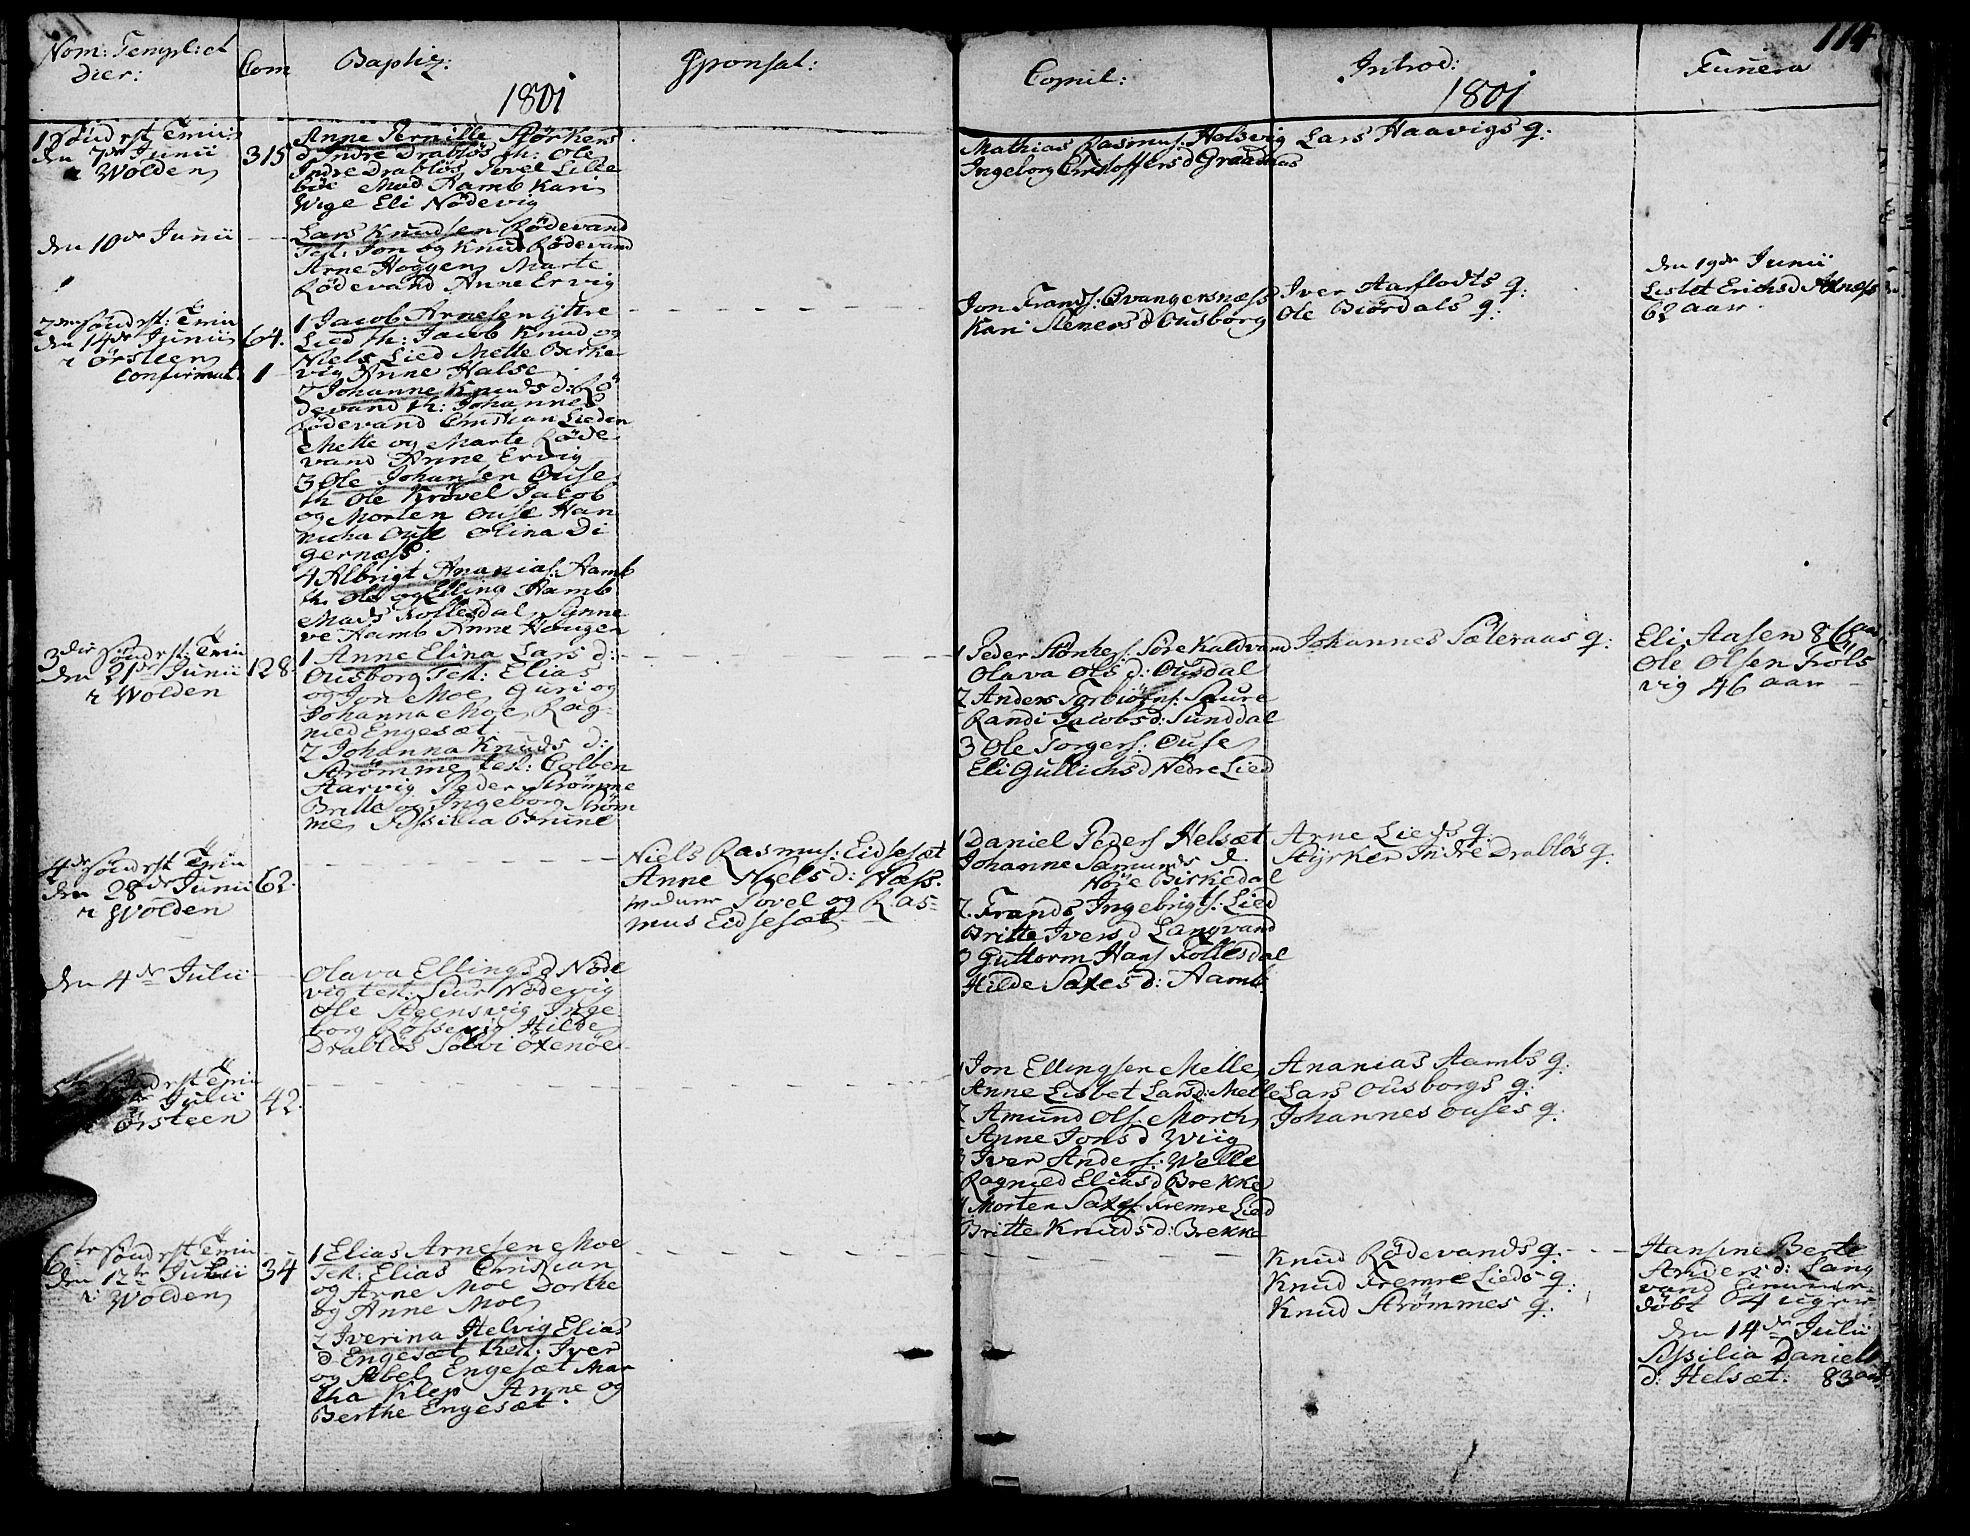 114
Nom: Templ: et
Dier:
Com
Baptiz:
1801
Sponsal:
Copul:
Introd:
1801
Funera
1 Sønd: p: Trin:
den 7de Junii
i Wolden
315
Anne Pernille Størkers
d: Indre Drabløs th: Ole
Indre Drabløs Sovel Lille
bøe Mad Aamb Kari
Wige Eli Nødevig
Mathias Rasmus: Helsvig
Ingeborg Christoffers d
Lars Haavigs q:
den 10de Junii
Lars Knudsen Rødevand
Test: Jon og Knud Rødevand
Arne Hoggen Marte
Rødevand Anne Ervig
den 19de Junii
Lisbet Erichs d
62 aar
2den Sønd: p: Trin
den 14de Junii
i Ørsteen
Confirmat:
64.
1
1 Jacob Arnesen ÿttre
Lied th: Jacob Knud og
Niels Lied Mette Birke
vig Anne Halse
2 Johanne Knuds d: Rø
devand th: Johannes
Rødevand Christian Lieden
Mette og Marte Røde
vand Anne Ervig
3 Ole Johansen Ouse
th Ole Krøvel Jacob
og Morten Ouse Han
nicha Ouse Olina Di
gernæss.
4 Albrigt Ananias: Aamb
th. Ole og Elling Aamb
Mads Follesdal Synne
ve Aamb Anne Hougen
Jon Frands: Ovangersnæss
Kari Steners d Ousborg
Iver Aarflodts q:
Ole Biørdals q:
3die Sønd: p: Trin
den 21de Junii
i Wolden
128.
1 Anne Elina Lars d:
Ousborg Test: Elias
og Jon Moe Guri og
Johanna Moe Rag-
nied Engesæt
2 Johanna Knuds d:
Strømme test: Colben
Aarvig Peder Strømme
Britte og Ingeborg Strøm
me Sissilia Brune
1 Peder Størkers: Søre Kaldvand
Olava Ols d: Ousdal
2 Anders Torbiørns: Saure
Randi Jacobs d: Sunddal
3 Ole Torgers: Ouse
Eli Gullichs d Nedre Lied
Johannes Sæteraas q:
Eli Aasen 86 aar
Ole Olsen Føls
vig 46 aar
4de Sønd: p: Trin
den 28de Junii
i Wolden
62.
Niels Rasmus: Eidsesæt
Anne Niels d: Næss.
Sovel og Ras-
mus Eidsesæt
1 Daniel Peders Helsæt
Johanne Samunds d.
Nøre Birkedal
2. Frands Ingebrigts: Lied
Britte Ivers d Langvand
3 Guttorm Hans Follesdal
Hilde Saxes d: Aamb.
Arne Lieds q.
Styrker Indre Drabløs q.
den 4de Julii
Olava Ellings d Nøde
vig test: Siur Nødevig
Ole Steensvig Inge
borg Røssevig Hilde
Drabløs Sølvi Oxenøe
Sønd p: Trin
Julii
Ørsteen
42.
1 Jon Ellingsen Melle
Anne Lisbet Lars d: Melle
2 Amund Ols: Morch
Anne Jons d Wiig
3 Iver Anders: Welle
Ragnied Elias d Brekke
4 Morten Saxes: Fremre Lied
Britte Knuds d: Brekke
Ananias Aambs q:
Lars Ousborgs q:
Johannes Ouses q:
6te Sønd p: Trin
den 12te Julii
i Wolden
34
1 Elias Arnesen Moe
Test: Elias Christian
og Arne Moe Dorthe
og Anne Moe
2 Iverina Helvig Elias
d Engesæt test: Iver
og Abel Engesæt Mar
tha Klep Anne og
Berthe Engesæt.
Knud Rødevands q.
Knud Fremre Lieds q:
Knud Strømmes q:
Hansine Berte
Anders d: Lang
vand
døbt 4 uger
den 14de Julii
Sissilia Daniels
d: Helsæt: 83 aar